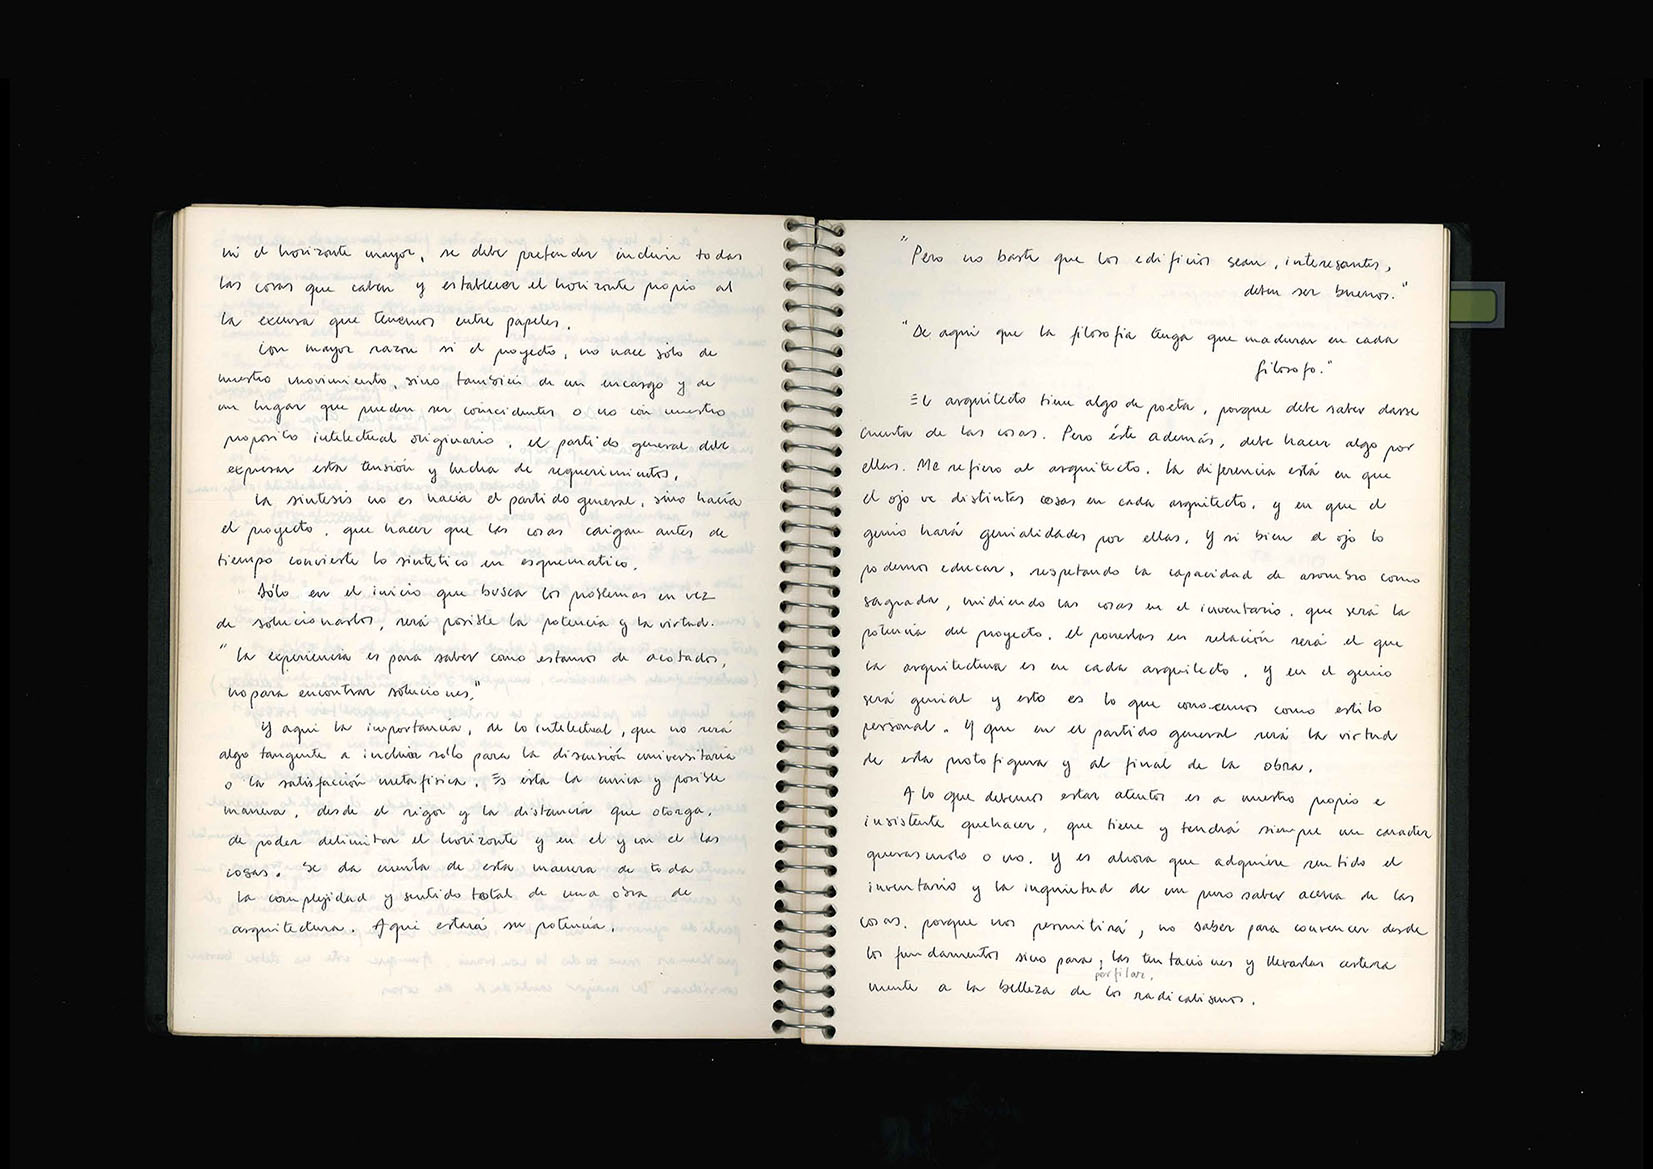 ni el horizonte mayor, se debe pretender incluir todas
las cosas que caben y establecer el horizonte propio al
la excusa que tenemos entre papeles.
Con mayor razon si el proyecto, no nace sólo de
nuestro movimiento, sino también de un encargo y de
un lugar que pueden ser coincidentes o no con nuestro
proposito intelectual originario, el partido general debe
expresar esta tensión y lucha de requerimientos.
La sintesis no es hacia el partido general, sino hacia
el proyecto, que hacer que las cosas caigan antes de
tiempo convierte lo sintetico en esquematico.
Sólo en el inicio que busca los problemas en vez
de solucionarlos, será posible la potencia y la virtud.
"La experiencia es para saber como estamos de acotados,
no para encontrar soluciones."
Y aqui la importancia, de lo intelectual, que no será
algo tangente a incluir sólo para la discusión universitaria
o la satisfacción metafisica. Es esta la unica y posible
manera, desde el rigor y la distancia que otorga,
de poder delimitar el horizonte y en el y con el las
cosas. Se da cuenta de esta manera de toda
la complejidad y sentido total de una obra de
arquitectura. Aqui estará su potencia.
"Pero no baste que los edificios sean, interesantes,
deben ser buenos."
"De aqui que la filosofia tenga que madurar en cada
filosofo."
El arquitecto tiene algo de poeta, porque debe saber darse
cuenta de las cosas. Pero éste además, debe hacer algo por
ellas. Me refiero al arquitecto. La diferencia está en que
el ojo ve distintas cosas en cada arquitecto, y en que el
genio hará genialidades por ellas. Y si bien el ojo lo
podemos educar, respetando la capacidad de asombro como
sagrada, midiendo las cosas en el inventario, que será la
potencia del proyecto, el ponerlas en relación será el que
la arquitectura es en cada arquitecto. Y en el genio
será genial y esto es lo que conocemos como estilo
personal. Y que en el partido general será la virtud
de esta protofigura y al final de la obra.
A lo que debemos estar atentos es a nuestro propio e
insistente quehacer, que tiene y tendrá siempre un caracter
querasmolo o no. Y es ahora que adquiere sentido el
inventario y la inquietud de un puro saber acerca de las
cosas, porque nos permitirá, no saber para convencer desde
los fundamentos sino para, las tentaciones y llevarlas certera
perfilar,
mente a la belleza de los radicalismos.